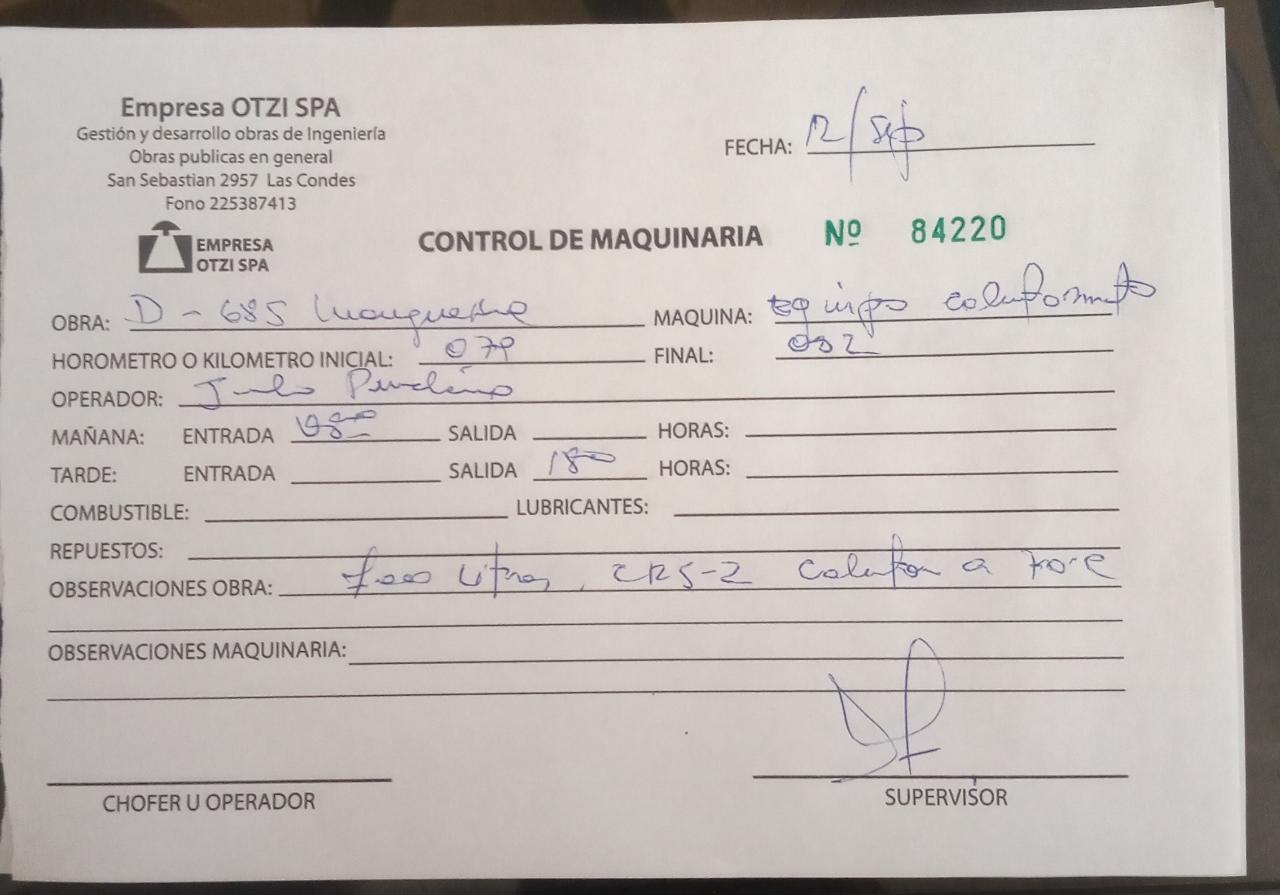 Empresa OTZI SPA
Gestión y desarrollo obras de Ingeniería
Obras publicas en general
San Sebastian 2957 Las Condes
Fono 225387413
EMPRESA
OTZI SPA
FECHA: 12/Sep
CONTROL DE MAQUINARIA Nº 84220
OBRA: D-685 MAQUINA: Equipo
HOROMETRO O KILOMETRO INICIAL: 079 FINAL: 082
OPERADOR: Julio
MAÑANA: ENTRADA 0800 SALIDA HORAS:
TARDE: ENTRADA SALIDA 1800 HORAS:
COMBUSTIBLE: LUBRICANTES:
REPUESTOS:
OBSERVACIONES OBRA: Litros, CRS-2 a
OBSERVACIONES MAQUINARIA:
CHOFER U OPERADOR SUPERVISOR